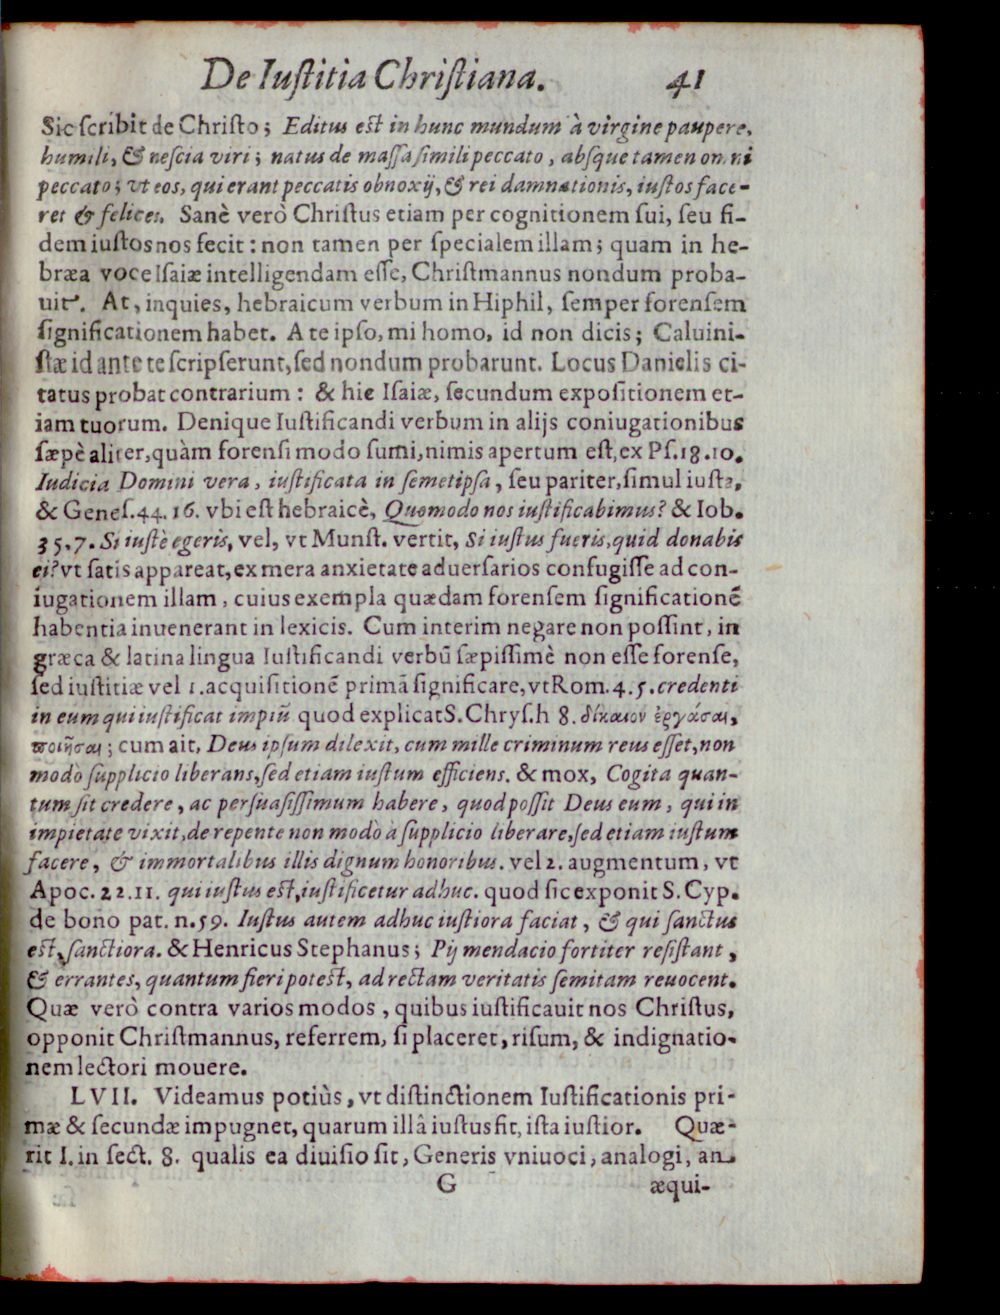 De Iuſtitia Chriſtiana. 41
Sic ſcribit de Chriſto; Editus eſt in hunc mundum à virgine paupere,
humili, & neſcia viri; natus de maſſa ſimili peccato, abſque tamen omni
peccato; vt eos, qui erant peccatis obnoxij, & rei damnationis, iuſtos face-
ret & felices. Sanè verò Chriſtus etiam per cognitionem ſui, ſeu fi-
dem iuſtos nos fecit: non tamen per ſpecialem illam; quam in he-
bræa voce Iſaiæ intelligendam eſſe, Chriſtmannus nondum proba-
uit. At, inquies, hebraicum verbum in Hiphil, ſemper forenſem
ſignificationem habet. A te ipſo, mi homo, id non dicis; Caluini-
ſtæ id ante te ſcripſerunt, ſed nondum probarunt. Locus Danielis ci-
tatus probat contrarium: & hic Iſaiæ, ſecundum expoſitionem et-
iam tuorum. Denique Iuſtificandi verbum in alijs coniugationibus
ſæpè aliter, quàm forenſi modo ſumi, nimis apertum eſt, ex Pſ. 18. 10.
Iudicia Domini vera, iuſtificata in ſemetipſa, ſeu pariter, ſimul iuſta,
& Geneſ. 44. 16. vbi eſt hebraicè, Quomodo nos iuſtificabimus? & Iob.
35. 7. Si iuſtè egeris, vel, vt Munſt. vertit, Si iuſtus fueris, quid donabis
ei? vt ſatis appareat, ex mera anxietate aduerſarios confugiſſe ad con-
iugationem illam, cuius exempla quædam forenſem ſignificationẽ
habentia inuenerant in lexicis. Cum interim negare non poſſint, in
græca & latina lingua Iuſtificandi verbũ ſæpiſſimè non eſſe forenſe,
ſed iuſtitiæ vel 1. acquiſitionẽ primã ſignificare, vt Rom. 4. 5. credenti
in eum qui iuſtificat impiũ quod explicat S. Chryſ. h 8. δίκαιον ἐργάσαι,
ποιῆσαι; cum ait, Deus ipſum dilexit, cum mille criminum reus eſſet, non
modò ſupplicio liberans, ſed etiam iuſtum efficiens. & mox, Cogita quan-
tum ſit credere, ac perſuaſiſſimum habere, quod poſſit Deus eum, qui in
impietate vixit, de repente non modò à ſupplicio liberare, ſed etiam iuſtum
facere, & immortalibus illis dignum honoribus. vel 2. augmentum, vt
Apoc. 22. 11. qui iuſtus eſt, iuſtificetur adhuc. quod ſic exponit S. Cyp.
de bono pat. n. 59. Iuſtus autem adhuc iuſtiora faciat, & qui ſanctus
eſt, ſanctiora. & Henricus Stephanus; Pij mendacio fortiter reſiſtant,
& errantes, quantum fieri poteſt, ad rectam veritatis ſemitam reuocent.
Quæ verò contra varios modos, quibus iuſtificauit nos Chriſtus,
opponit Chriſtmannus, referrem, ſi placeret, riſum, & indignatio-
nem lectori mouere.
LVII. Videamus potiùs, vt diſtinctionem Iuſtificationis pri-
mæ & ſecundæ impugnet, quarum illâ iuſtus fit, iſta iuſtior. Quæ-
rit I. in ſect. 8. qualis ea diuiſio ſit, Generis vniuoci, analogi, an
G æqui-